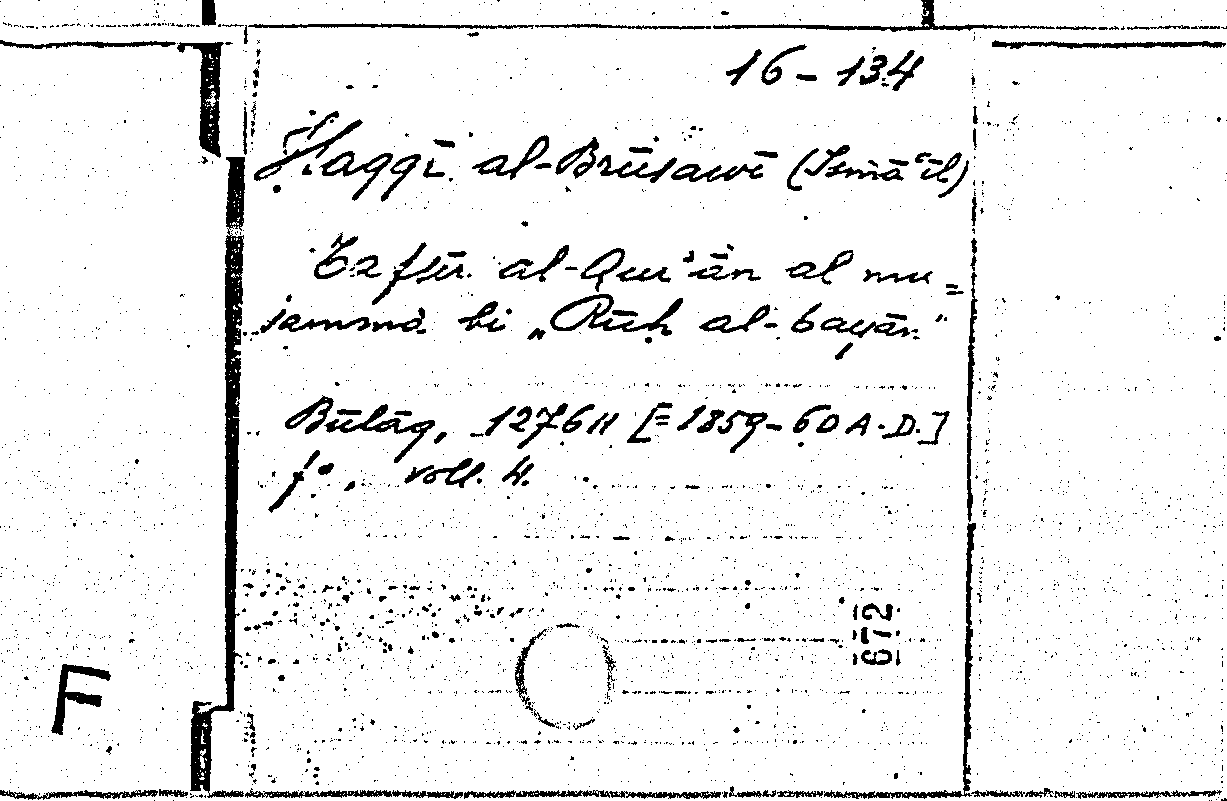 16 - 134
Ḥaqqī al-Brūsawī (Ismāʿīl)
Tafsīr al-Qur'ān al mu=
sammà bi „Rūḥ al-bayān"
Būlāq, 1276 H [= 1859-60 A.D.]
f°. voll. 4.
672
F